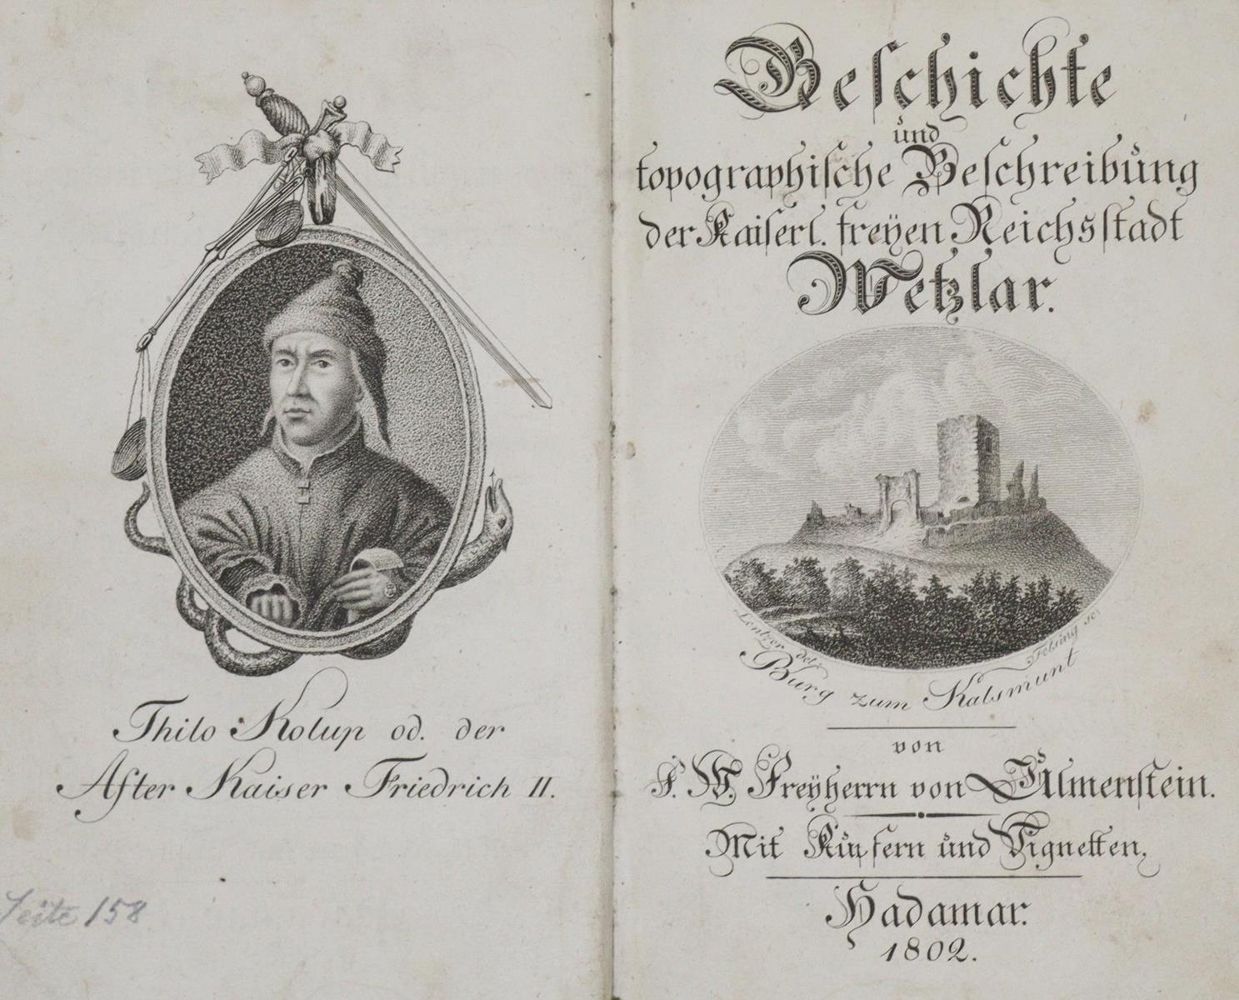 Thilo Kolup od. der
After Kaiser Friedrich II.
Seite 158
Geschichte
und
topographische Beschreibung
der Kaiserl. freÿen Reichsstadt
Wetzlar.
Lentzer del.
Felsing sc.
Burg zum Kalsmunt
von
F. W. Freÿherrn von Ulmenstein.
Mit Kupfern und Vignetten,
Hadamar.
1802.